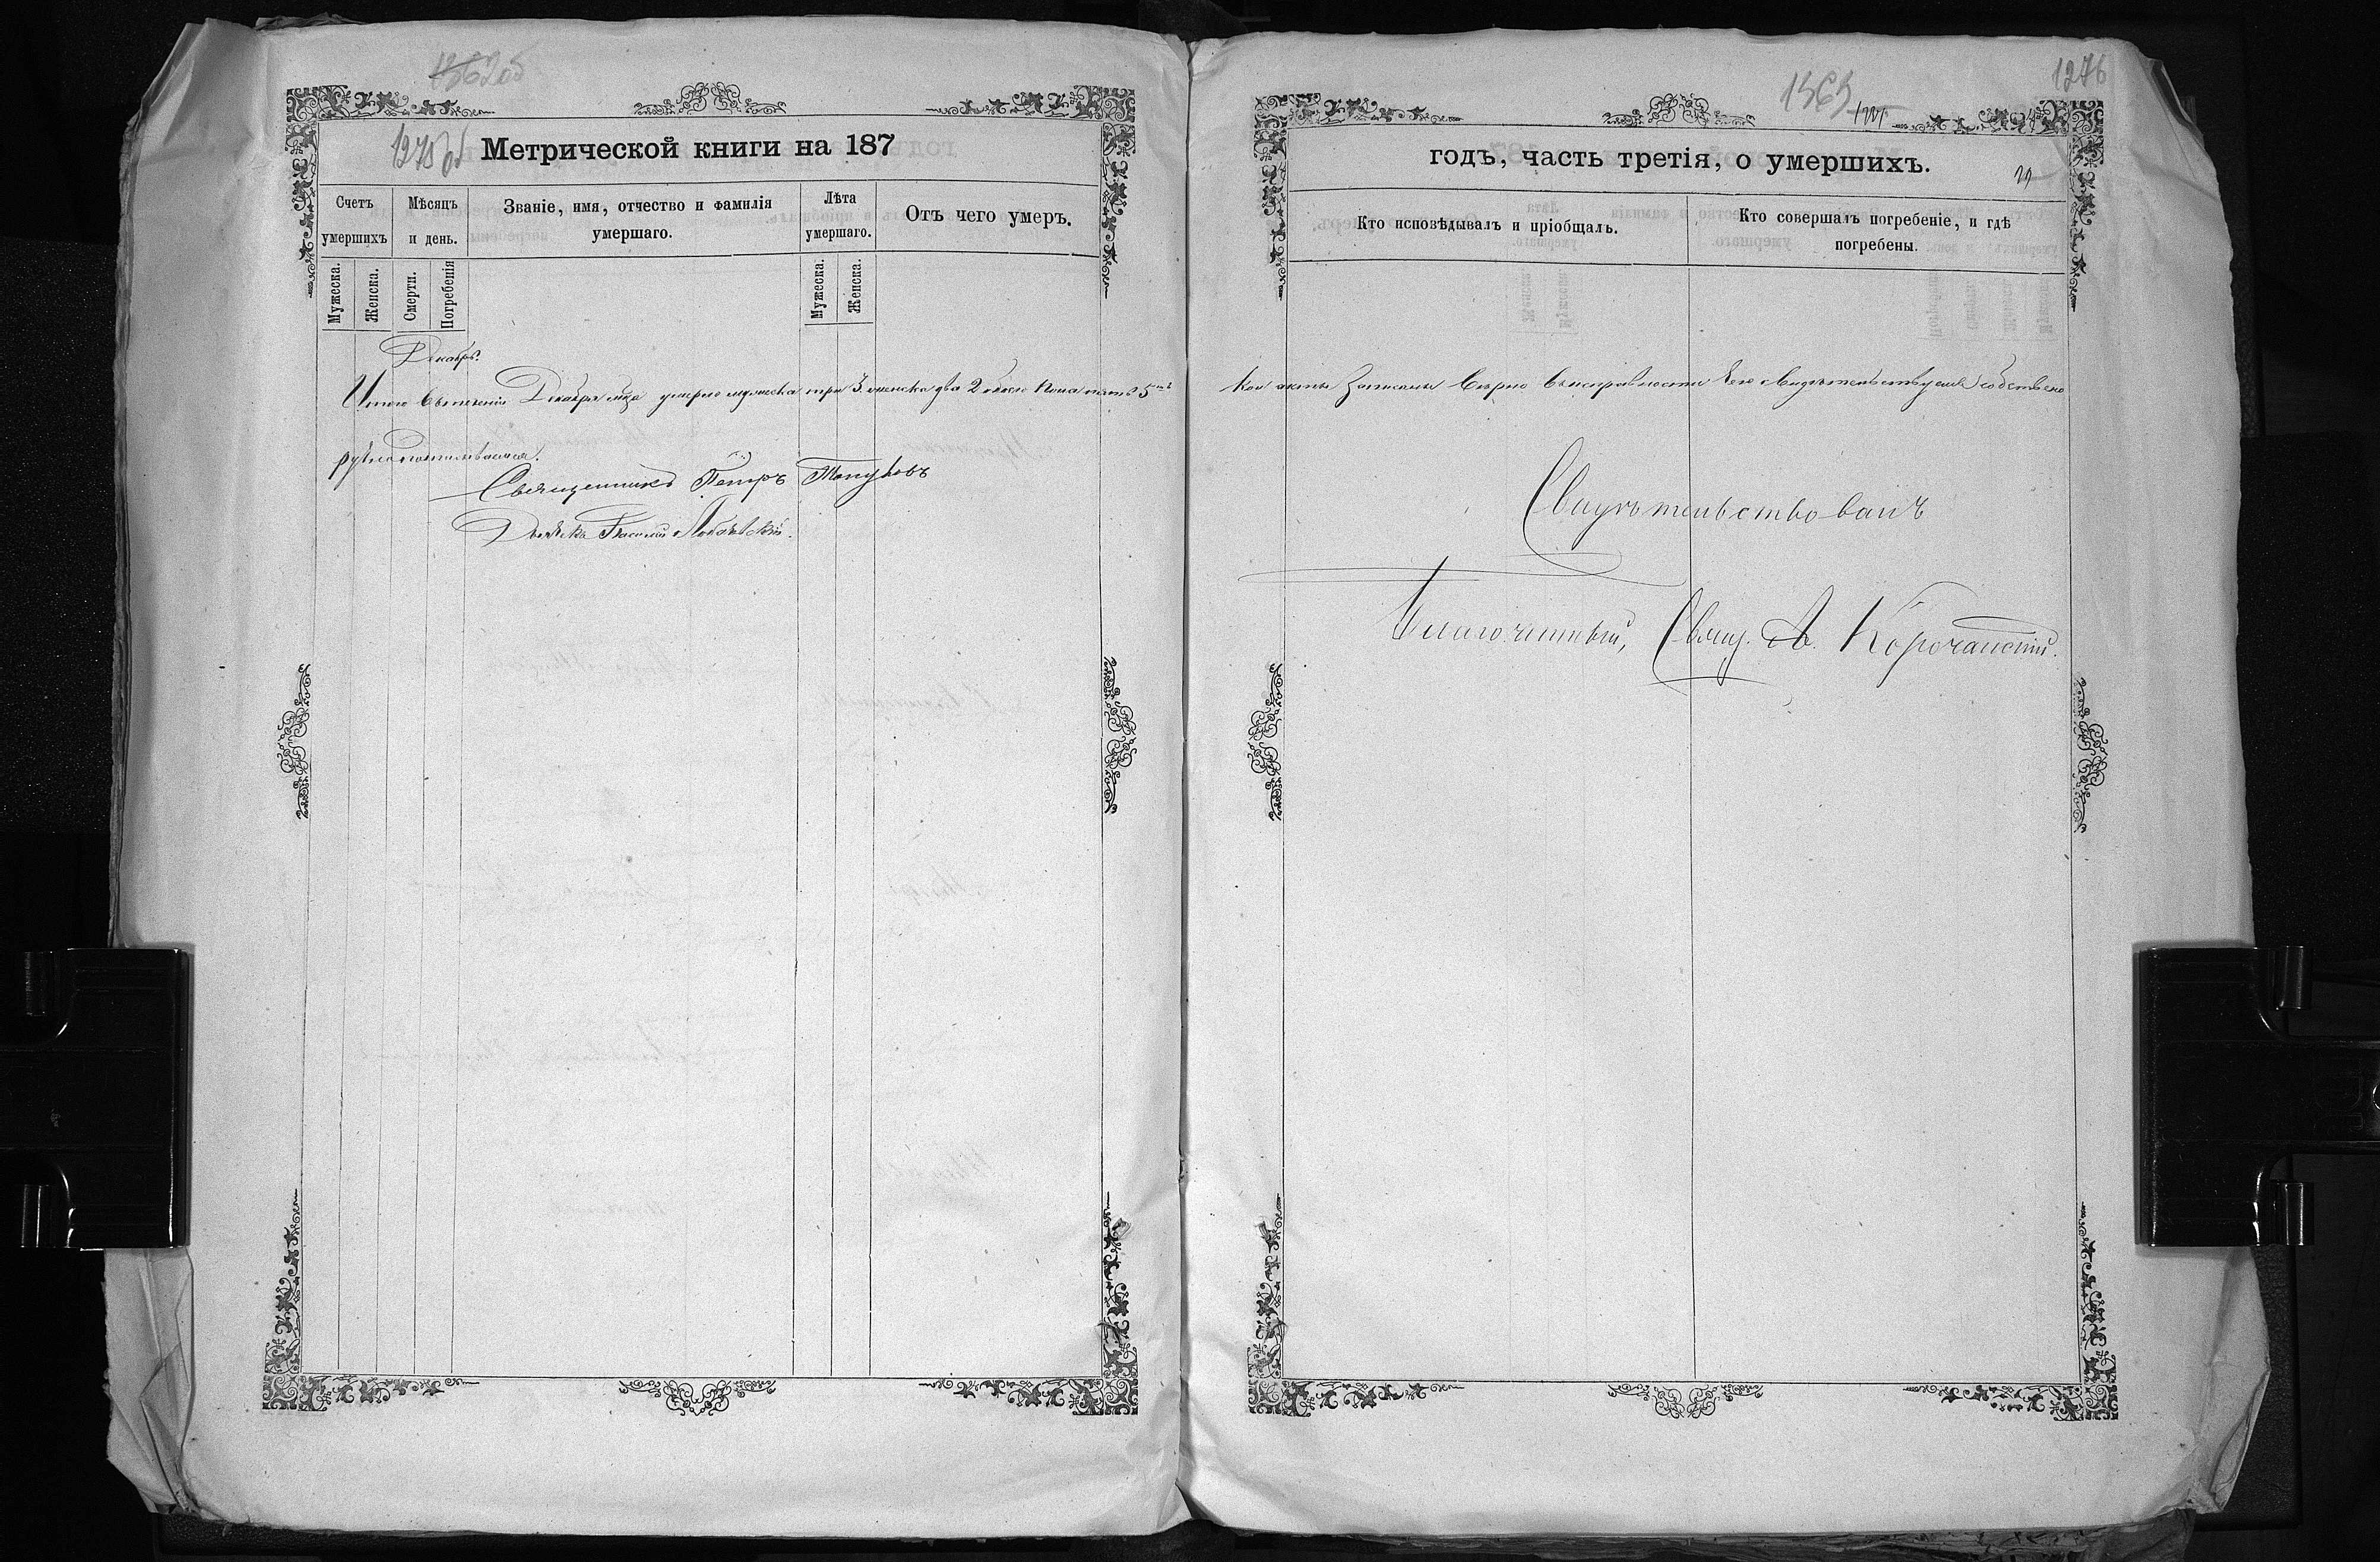 1362об
1275об
Метрической книги на 187
Счетъ умершихъ
Мѣсяцъ и день.
Званіе, имя, отчество и фамилія умершаго.
Лѣта умершаго.
Отъ чего умеръ.
Мужеска.
Женска.
Смерти.
Погребенія
Мужеска.
Женска.
Декабрь.
Итого въ теченіи Декабря мца умерло мужеска три 3 женска два 2 обоего пола пять 5
руч
Священникъ Петръ
Дьячекъ Василій
1363
1276
годъ, часть третія, о умершихъ.
29
Кто исповѣдывалъ и пріобщалъ.
Кто совершалъ погребеніе, и гдѣ погребены.
Кои акты записаны вѣрно въ исправности чего свидѣтельствуемъ собственно
Свидѣтельствовалъ
Благочинный, Свящ. А. Корочанскій.